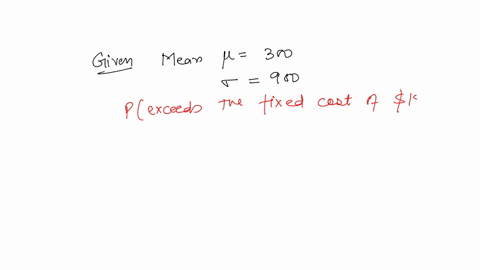 Given Mean μ = 300
σ = 900
P(exceeds the fixed cost of $1